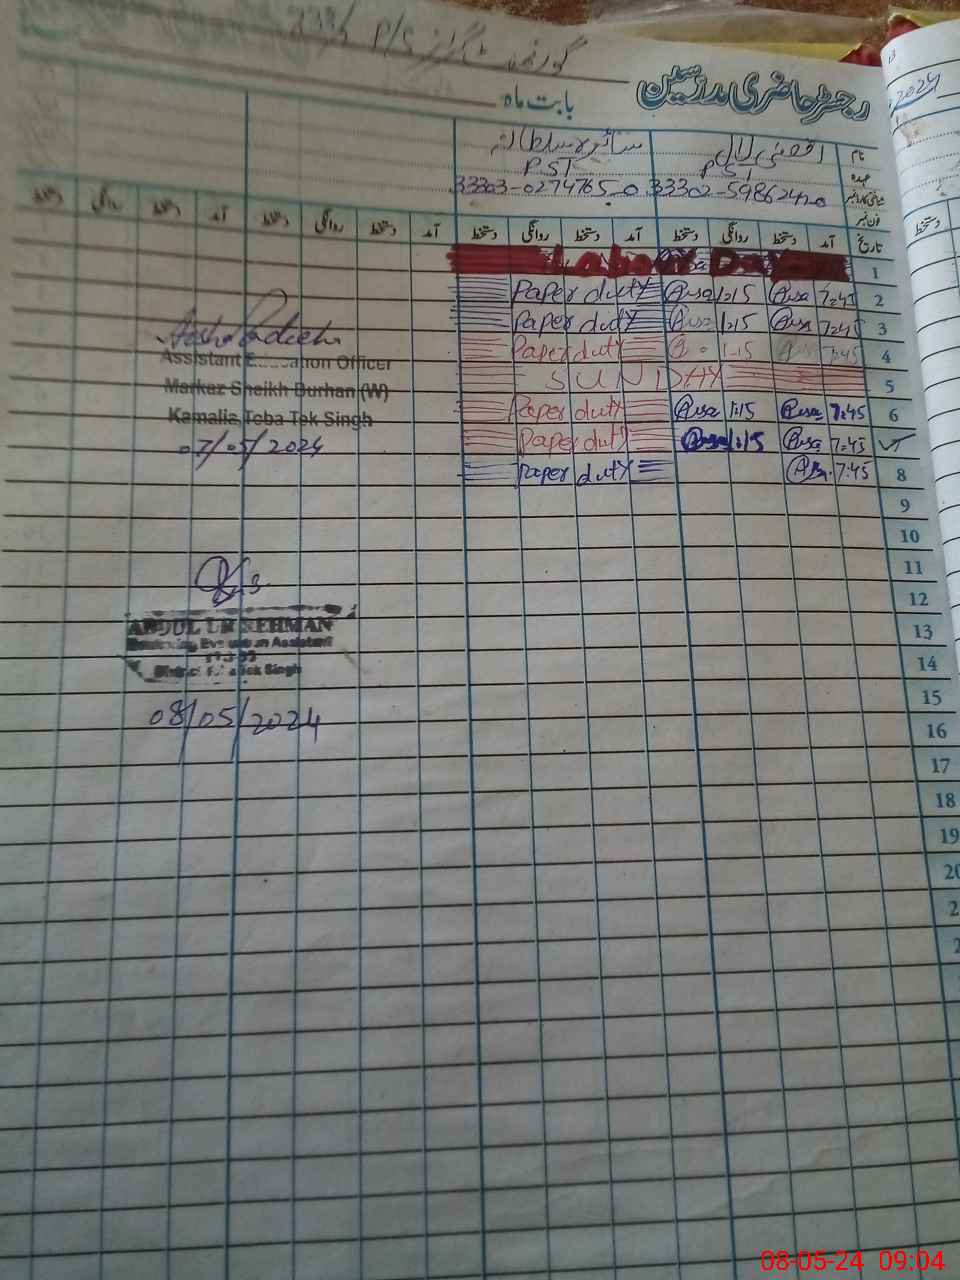 گورنمنٹ گرلز P/S 233/
رجسٹر حاضری مدرسین
بابت ماہ
2024
نام اقصیٰ لال سائرہ سلطانہ
عہدہ PST PST
شناختی کارڈ نمبر 33302-5986242-0 33303-0274765-0
فون نمبر
تاریخ آمد دستخط روانگی دستخط آمد دستخط روانگی دستخط آمد دستخط روانگی دستخط آمد دستخط روانگی دستخط
1 Labour Da
2 7:45 1:15 Paper duty
3 7:45 1:15 Paper duty
4 7:45 1:15 Paper duty
5 SUNDAY
6 7:45 1:15 Paper duty
7:45 1:15 Paper duty
8 7:45 Paper duty
9
10
11
12
13
14
15
16
17
18
19
Assistant Education Officer
Markaz Sheikh Burhan (W)
Kamalia, Toba Tek Singh
07/05/2024
ABDUL UR REHMAN
Assistant
District Tek Singh
08/05/2024
08-05-24 09:04